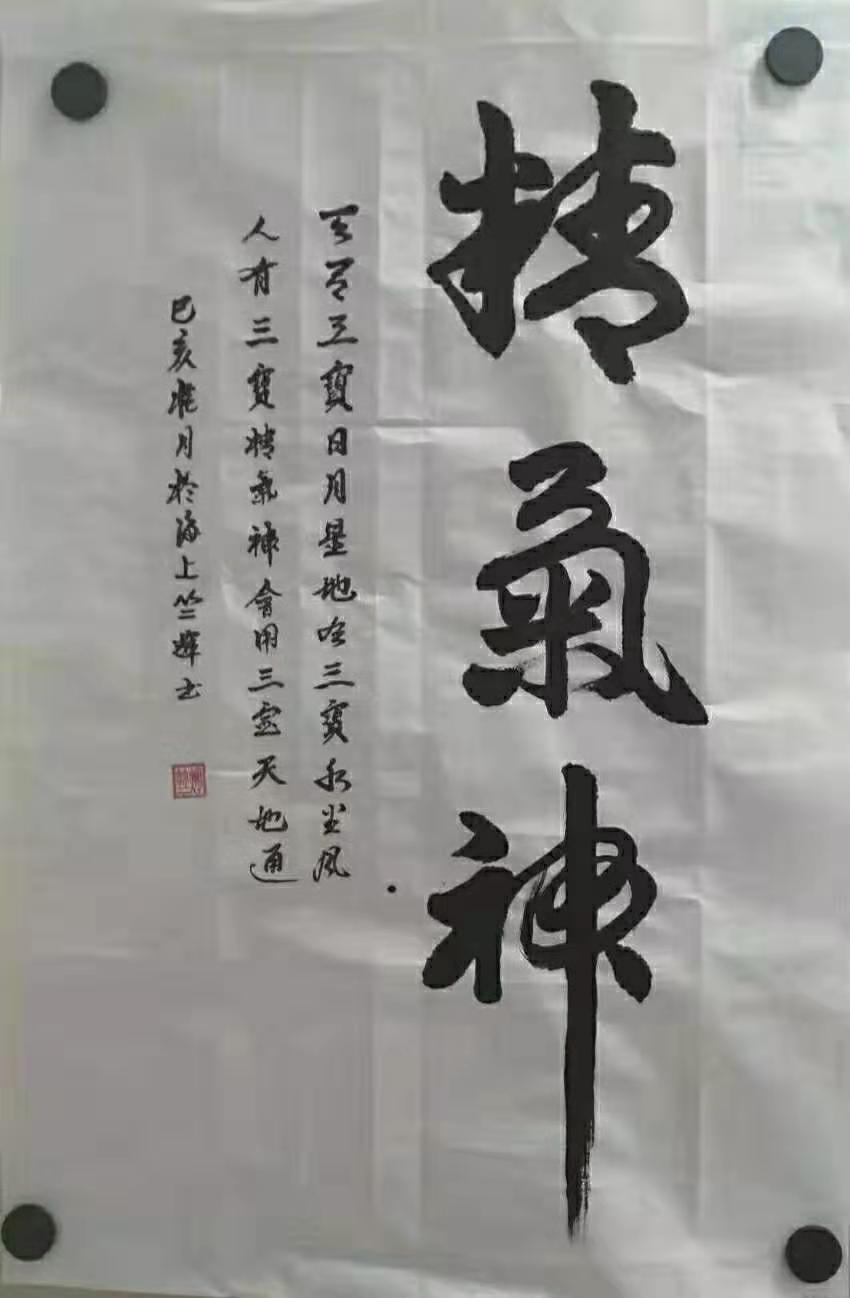 精氣神
天有三寶日月星地有三寶水火風
人有三寶精氣神會用三宝天地通
己亥桃月於海上竺輝书